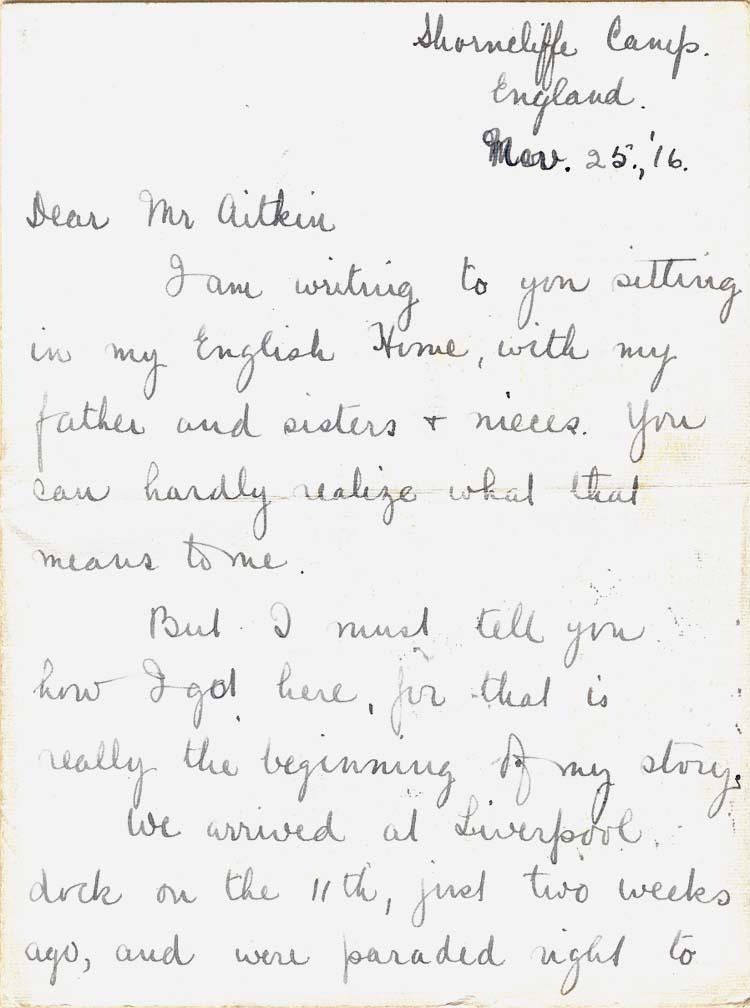 Shorncliffe Camp.
England.
Nov. 25., '16.
Dear Mr Aitkin
I am writing to you sitting
in my English Home, with my
father and sisters + nieces. You
can hardly realize what that
means to me.
But I must tell you
how I got here, for that is
really the beginning of my story.
We arrived at Liverpool
dock on the 11th, just two weeks
ago, and were paraded right to